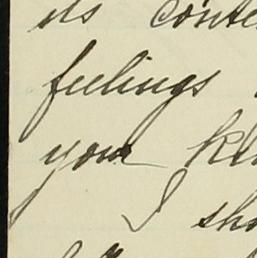 its conte
feelings
your ki
I sho